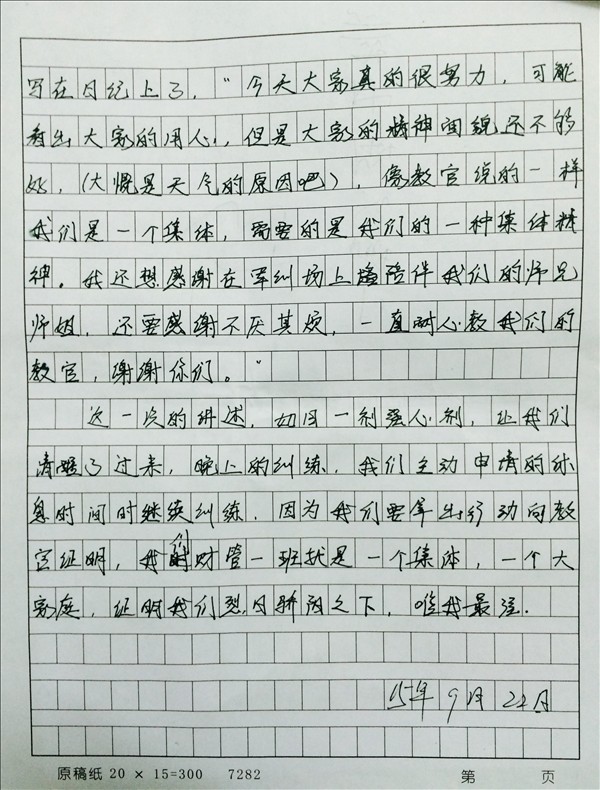 写在日纪上了，“今天大家真的很努力，可能
看出大家的用心，但是大家的精神面貌还不够
好，（大慨是天气的原因吧），像教官说的一样
我们是一个集体，需要的是我们的一种集体精
神。我还想感谢在军纠场上陪伴我们的师兄
师姐，还要感谢不厌其烦，一直耐心教我们的
教官，谢谢你们。”
这一次的讲述，如同一剂强心剂，让我们
清醒了过来，晚上的纠练，我们主动申请的休
息时间时继续纠练，因为我们要拿出行动向教
官证明，我们财管一班就是一个集体，一个大
家庭，证明我们烈日骄阳之下，唯我最强．
15年9月22日
原稿纸 20 × 15=300 7282 第 页